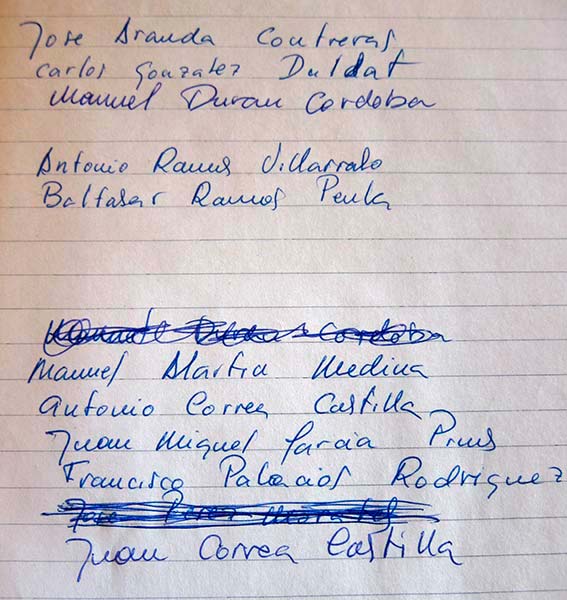 Jose Aranda Contreras
Carlos Gonzalez Duldat
Manuel Duran Cordoba
Antonio Ramos Villarralo
Baltasar Ramos Penla
Manuel Duran Cordoba
Manuel Martin Medina
Antonio Correa Castilla
Juan Miguel Garcia
Francisco Palacios Rodriguez
Jose Perez
Juan Correa Castilla